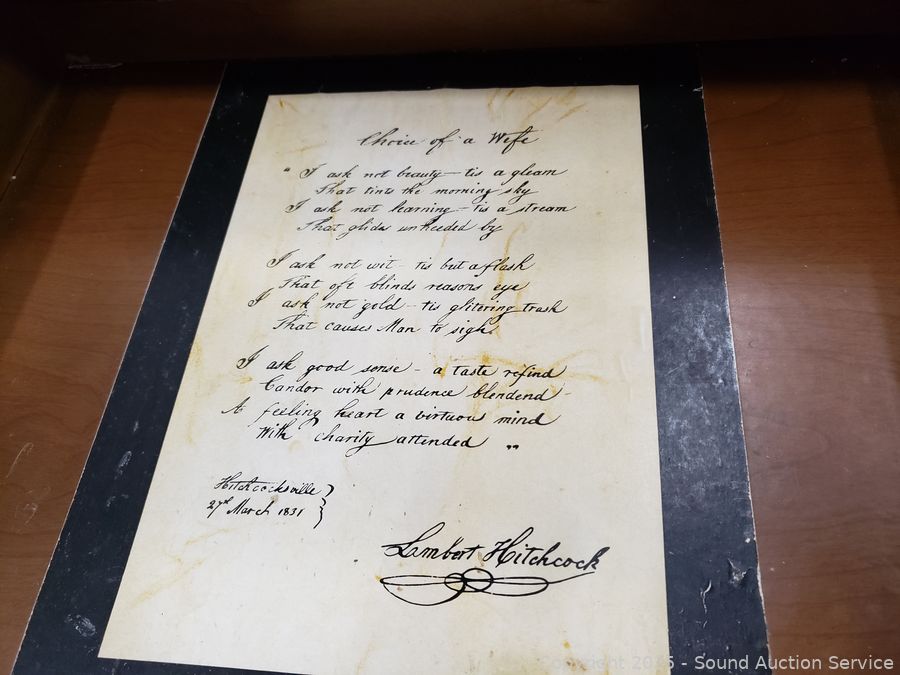 Choice of a Wife
" I ask not beauty - tis a gleam
That tints the morning sky
I ask not learning - tis a stream
That glides unheeded by
I ask not wit - tis but a flash
That oft blinds reasons eye
I ask not gold - tis glitering trash
That causes Man to sigh
I ask good sense - a taste refind
Candor with prudence blendend
A feeling heart a virtuou mind
With charity attended "
Hitchcocksville
27th March 1831
Lambert Hitchcock
- Sound Auction Service